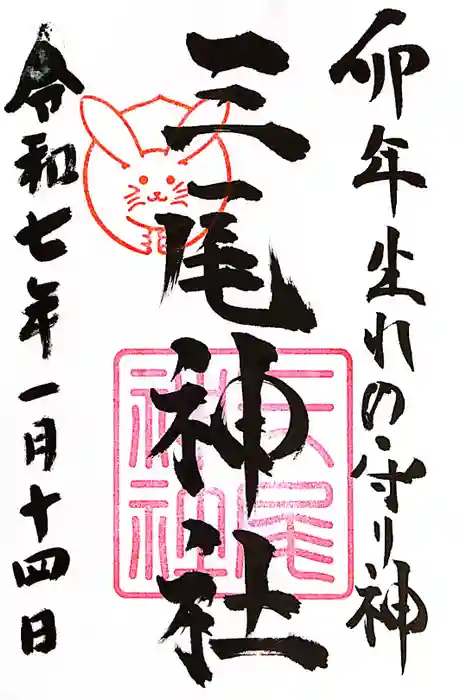 卯年生れの守り神
三尾神社
三尾神社
令和七年一月十四日